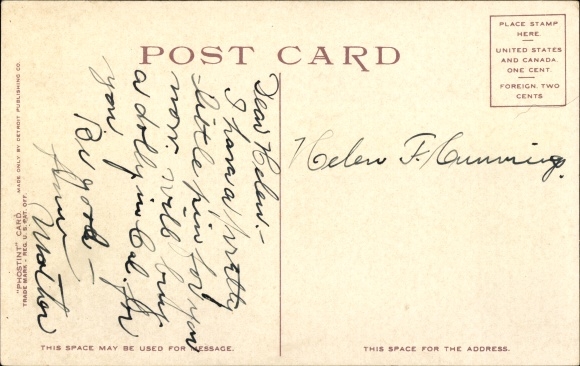 POST CARD
PLACE STAMP
HERE
UNITED STATES
AND CANADA,
ONE CENT.
FOREIGN, TWO
CENTS
"PHOSTINT" CARD. MADE ONLY BY DETROIT PUBLISHING CO.
TRADE MARK - REG. U. S. PAT. OFF.
Dear Helen.-
I have a pretty
little pin for you
now. will buy
a dolly in Cal. for
you
Be good -
Mother
Helen F. Cumming.
THIS SPACE MAY BE USED FOR MESSAGE.
THIS SPACE FOR THE ADDRESS.